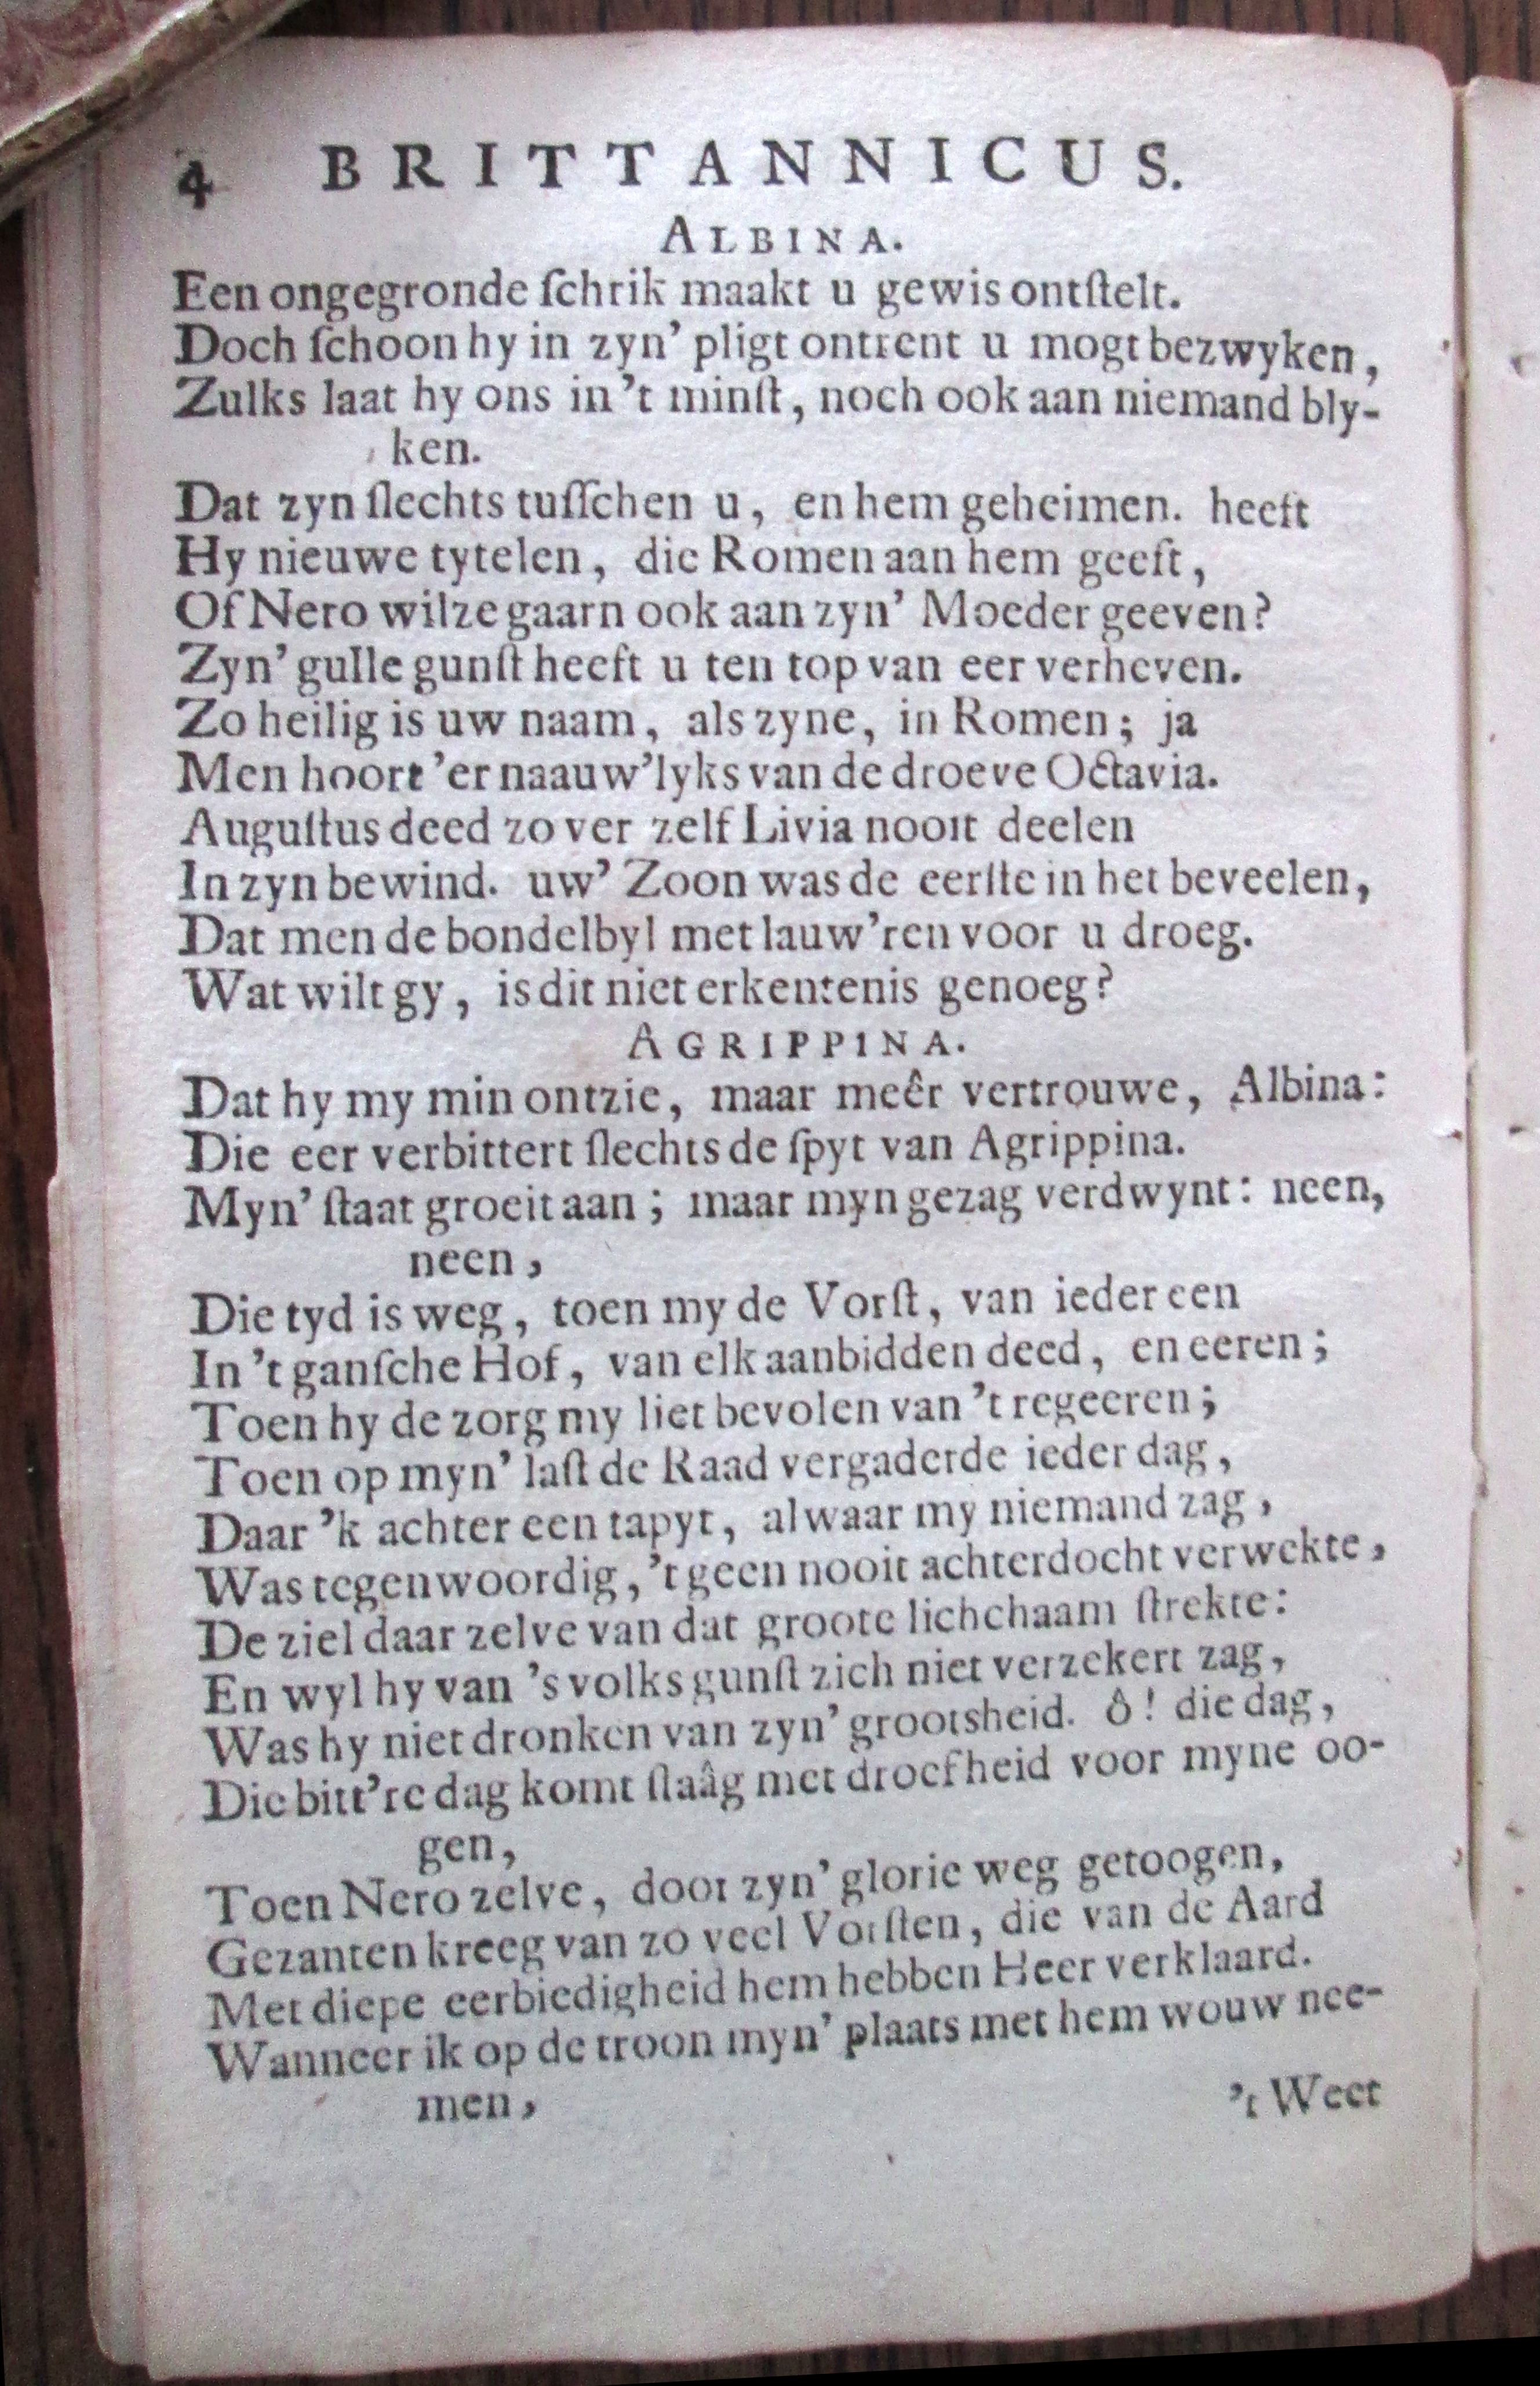 4 BRITTANNICUS.
ALBINA.
Een ongegronde ſchrik maakt u gewis ontſtelt.
Doch ſchoon hy in zyn' pligt ontrent u mogt bezwyken,
Zulks laat hy ons in 't minſt, noch ook aan niemand bly-
ken.
Dat zyn ſlechts tuſſchen u, en hem geheimen. heeft
Hy nieuwe tytelen, die Romen aan hem geeft,
Of Nero wil ze gaarn ook aan zyn' Moeder geeven?
Zyn' gulle gunſt heeft u ten top van eer verheven.
Zo heilig is uw naam, als zyne, in Romen; ja
Men hoort 'er naauw'lyks van de droeve Octavia.
Auguſtus deed zo ver zelf Livia nooit deelen
In zyn bewind. uw' Zoon was de eerſte in het beveelen,
Dat men de bondelbyl met lauw'ren voor u droeg.
Wat wilt gy, is dit niet erkentenis genoeg?
AGRIPPINA.
Dat hy my min ontzie, maar meêr vertrouwe, Albina:
Die eer verbittert ſlechts de ſpyt van Agrippina.
Myn' ſtaat groeit aan; maar myn gezag verdwynt: neen,
neen,
Die tyd is weg, toen my de Vorſt, van ieder een
In 't ganſche Hof, van elk aanbidden deed, en eeren;
Toen hy de zorg my liet bevolen van 't regeeren;
Toen op myn' laſt de Raad vergaderde ieder dag,
Daar 'k achter een tapyt, alwaar my niemand zag,
Was tegenwoordig, 't geen nooit achterdocht verwekte,
De ziel daar zelve van dat groote lichchaam ſtrekte:
En wyl hy van 's volks gunſt zich niet verzekert zag,
Was hy niet dronken van zyn' grootsheid. ô! die dag,
Die bitt're dag komt ſlaâg met droefheid voor myne oo-
gen,
Toen Nero zelve, door zyn' glorie weg getoogen,
Gezanten kreeg van zo veel Vorſten, die van de Aard
Met diepe eerbiedigheid hem hebben Heer verklaard.
Wanneer ik op de troon myn' plaats met hem wouw nee-
men,
't Weet